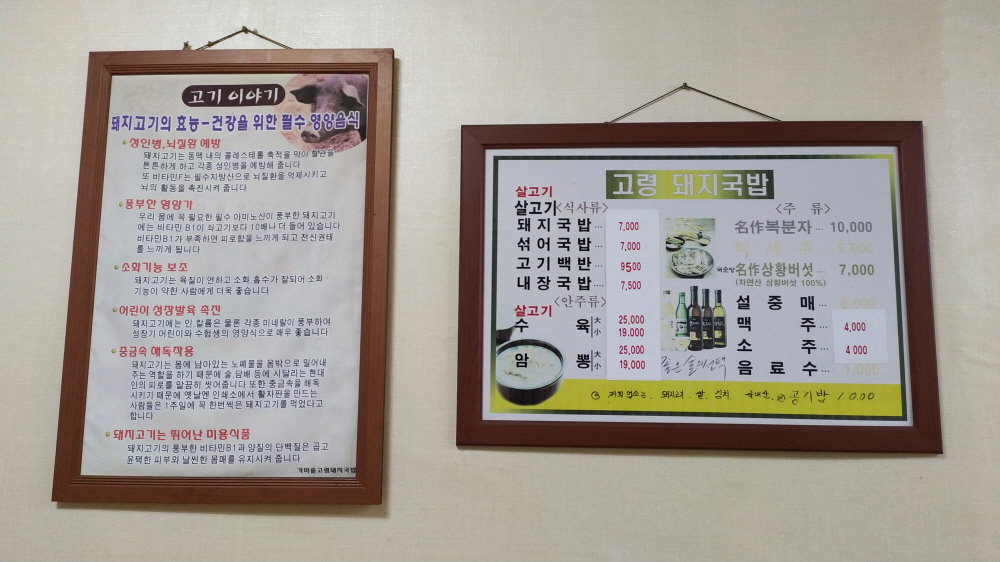 고기 이야기
돼지고기의 효능-건강을 위한 필수 영양음식
성인병,뇌질환 예방
돼지고기는 동맥 내의 콜레스테롤 축적을 막아 혈관을
튼튼하게 하고 각종 성인병을 예방해 줍니다
또 비타민F는 필수지방산으로 뇌질환을 억제시키고
뇌의 활동을 촉진시켜 줍니다
풍부한 영양가
우리 몸에 꼭 필요한 필수 아미노산이 풍부한 돼지고기
에는 비타민 B1이 쇠고기보다 10배나 더 들어 있습니다
비타민B1가 부족하면 피로함을 느끼게 되고 전신권태
를 느끼게 됩니다
소화기능 보조
돼지고기는 육질이 연하고 소화 흡수가 잘되어 소화
기능이 약한 사람에게 더욱 좋습니다
어린이 성장발육 촉진
돼지고기에는 인.칼륨은 물론 각종 미네랄이 풍부하여
성장기 어린이와 수험생의 영양식으로 매우 좋습니다
중금속 해독작용
돼지고기는 몸에 남아있는 노폐물을 몸밖으로 밀어내
주는 역할을 하기 때문에 술,담배 등에 시달리는 현대
인의 피로를 말끔히 씻어줍니다 또한 중금속을 해독
시키기 때문에 옛날엔 인쇄소에서 활자판을 만드는
사람들은 1주일에 꼭 한번씩은 돼지고기를 먹었다고
합니다
돼지고기는 뛰어난 미용식품
돼지고기의 풍부한 비타민B1과 양질의 단백질은 곱고
윤택한 피부와 날씬한 몸매를 유지시켜 줍니다
가마솥고령돼지국밥
고령 돼지국밥
살고기
살고기<식사류>
돼지국밥... 7,000
섞어국밥... 7,000
고기백반... 9500
내장국밥... 7,500
<안주류>
살고기
수 육 大 25,000
小 19,000
암 뽕 大 25,000
小 19,000
<주 류>
名作복분자... 10,000
백 세 주
名作상황버섯... 7,000
(자연산 상황버섯 100%)
설 중 매...
맥 주... 4,000
소 주... 4 000
음 료 수... 1,000
좋은 술의 선택
저희업소는. 돼지고기. 쌀. 김치 국내산. 공기밥 1000